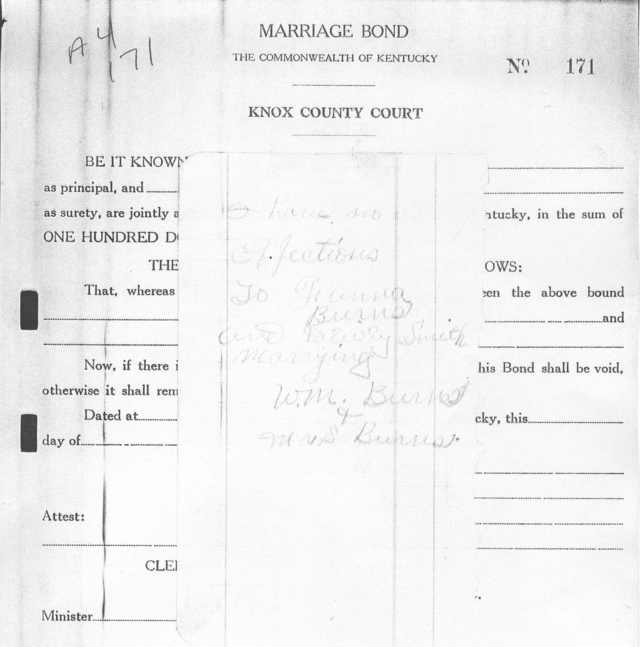 A 4
171
MARRIAGE BOND
THE COMMONWEALTH OF KENTUCKY
No. 171
KNOX COUNTY COURT
BE IT KNOWN
as principal, and
as surety, are jointly a
ntucky, in the sum of
ONE HUNDRED DO
THE
OWS:
That, whereas
een the above bound
and
Now, if there i
his Bond shall be void,
otherwise it shall rem
Dated at
cky, this
day of
Attest:
CLE
Minister
I have no
Ofjections
To
Burns
and Dewey Smith
Marrying
W.M. Burns
+
Mrs Burns.